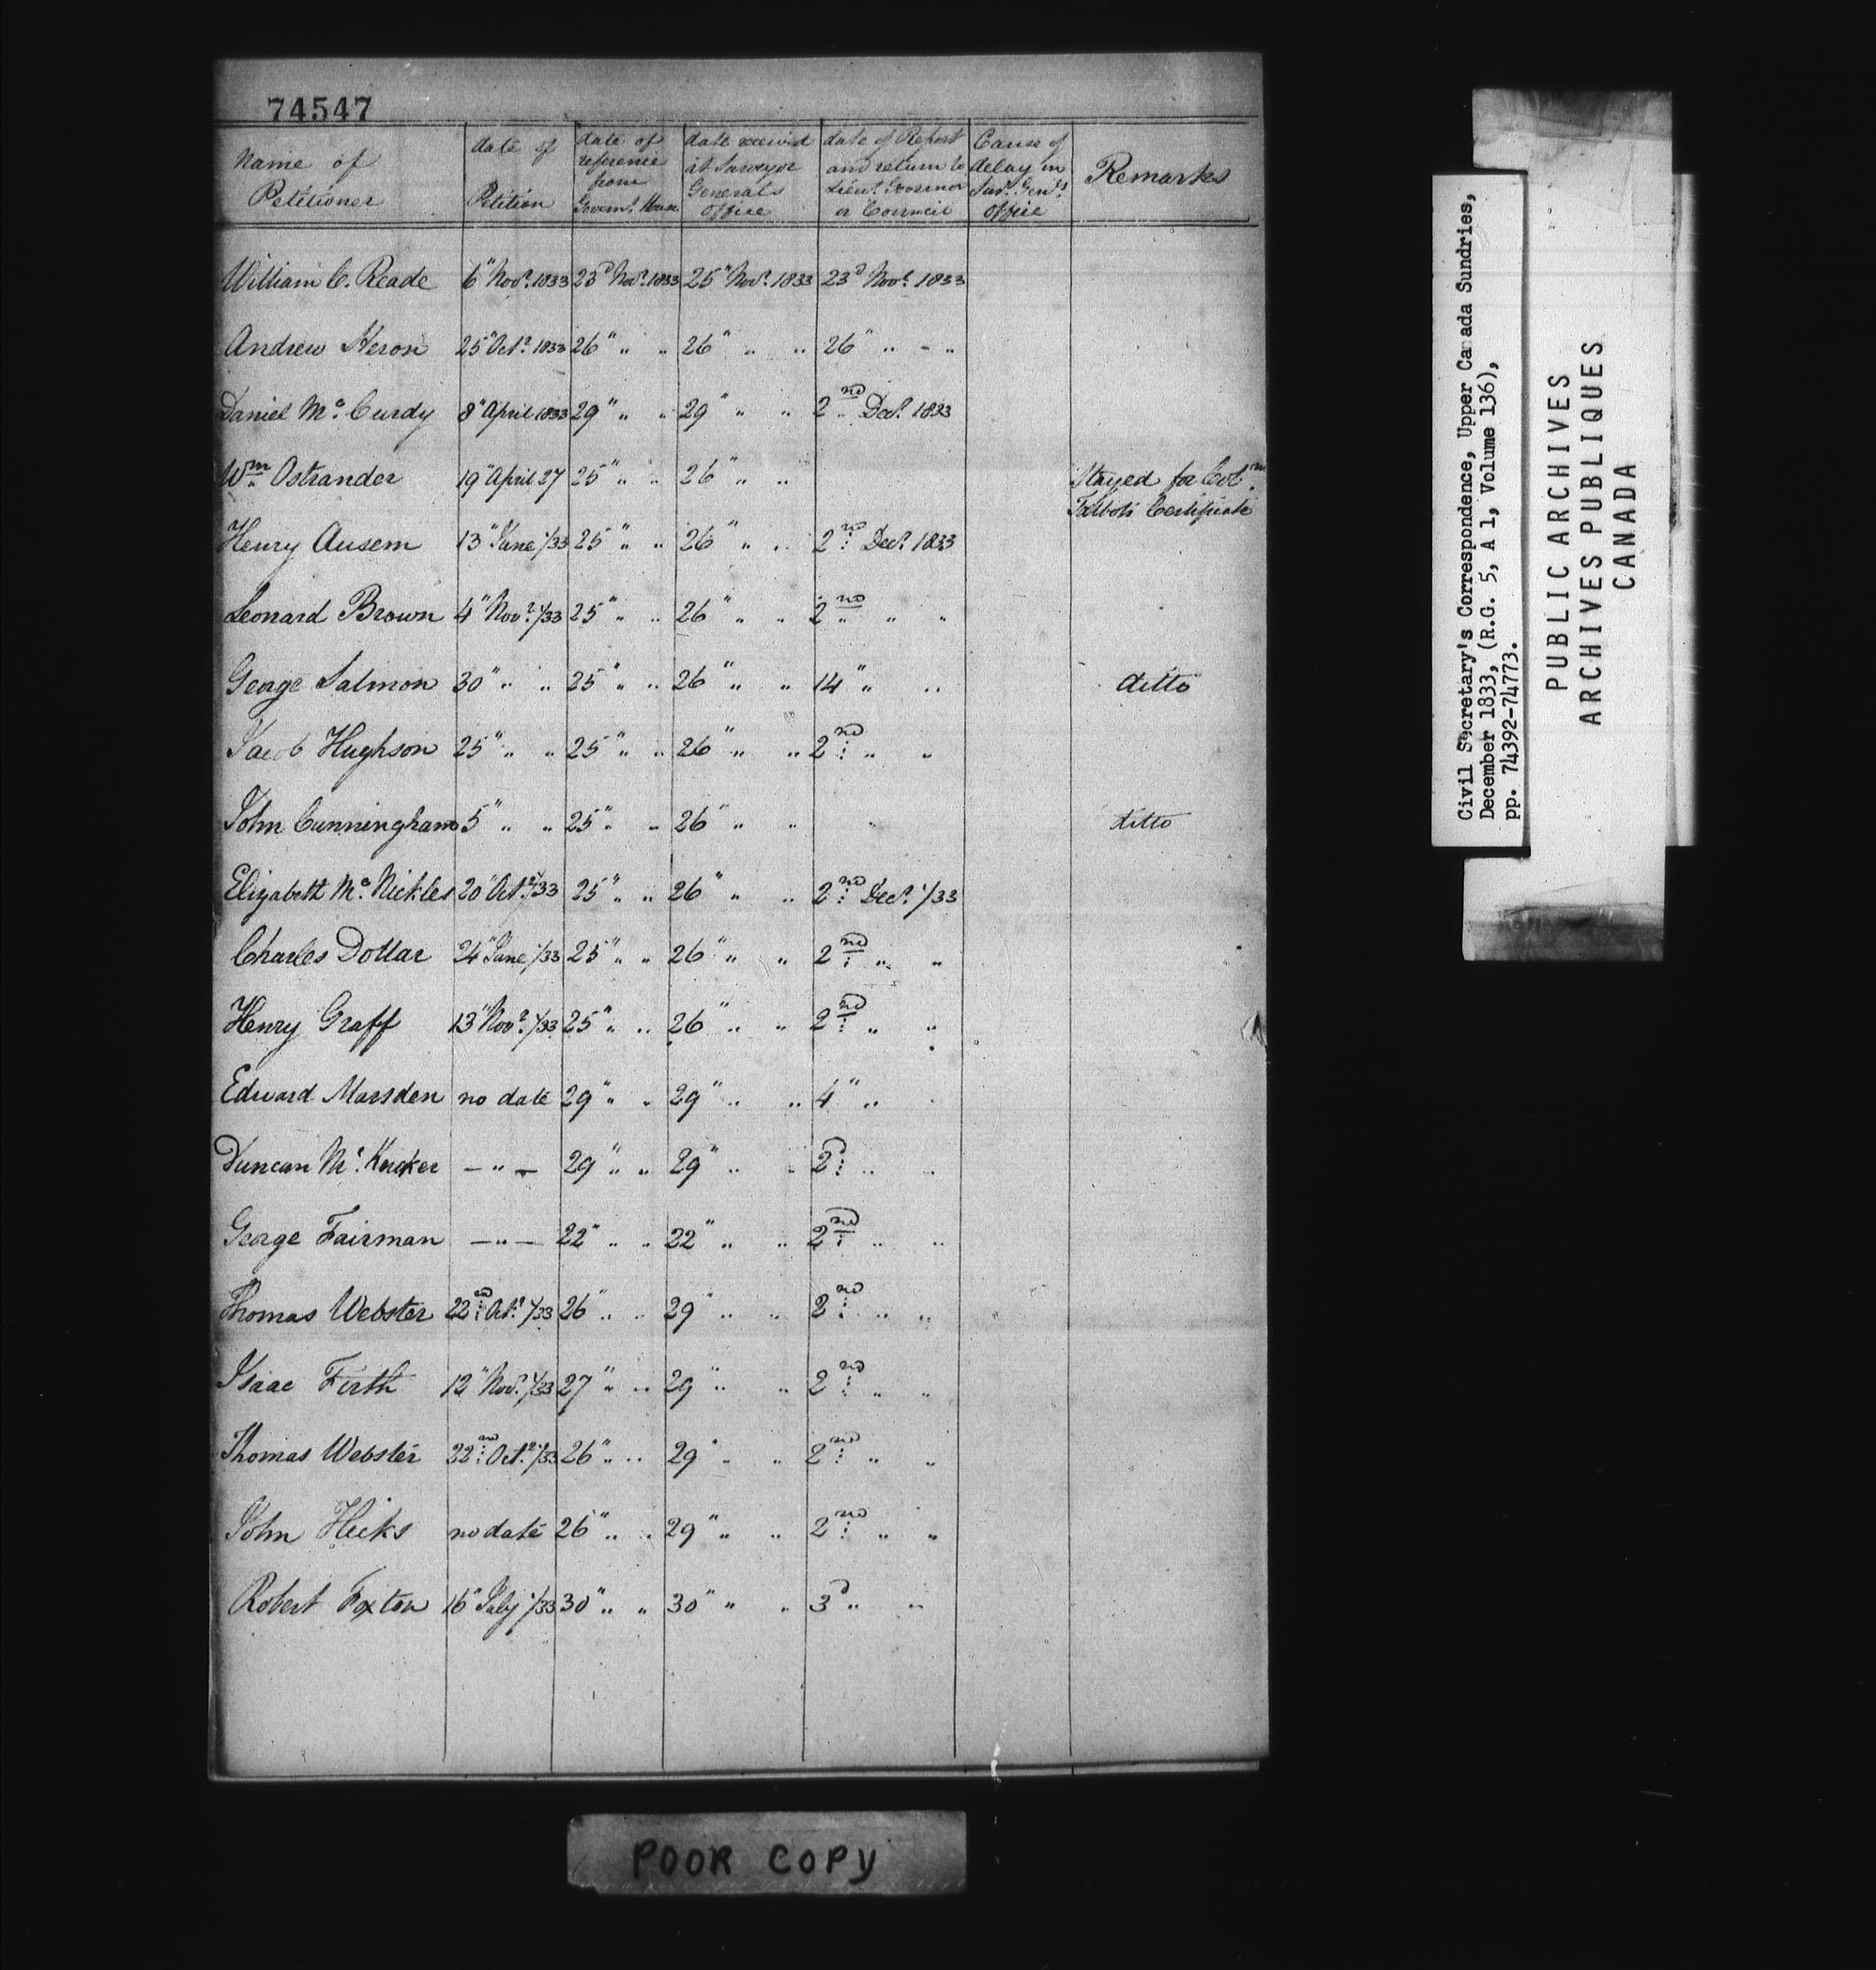 74547
Name of Petitioner | date of Petition | date of reference from Governt. House | date received at Surveyor General's Office | date of Report and return to Lieut. Governor or Council | Cause of delay in Sur. Genl's Office | Remarks
William C. Reade | 6" Novr. 1833 | 23d Novr. 1833 | 25" Novr. 1833 | 23d Novr. 1833
Andrew Heron | 25" Octr. 1833 | 26 " " " | 26 " " " | 26 " " - "
Daniel Mc. Curdy | 8" April 1833 | 29 " " " | 29 " " " | 2nd Decr. 1833
Wm Ostrander | 19" April 27 | 25 " " " | 26 " " " | | | Stayed for Col. Talbots Certificate
Henry Ausem | 13" June 1/33 | 25 " " " | 26 " " " | 2nd Decr. 1833
Leonard Brown | 4" Novr. 1/33 | 25 " " " | 26 " " " | 2nd " "
George Salmon | 30 " " " | 25 " " " | 26 " " " | 14 " " " | | ditto
Jacob Hughson | 25 " " " | 25 " " " | 26 " " " | 2nd " "
John Cunningham | 5 " " " | 25 " " | 26 " " " | | | ditto
Elizabeth Mc. Nickles | 20" Octr. 1/33 | 25 " " " | 26 " " " | 2nd Decr. 1/33
Charles Dottar | 24" June 1/33 | 25 " " " | 26 " " " | 2nd " "
Henry Graff | 13" Novr. 1/33 | 25 " " " | 26 " " " | 2nd " "
Edward Marsden | no date | 29 " " " | 29 " " " | 4 " "
Duncan Mc. | - " - | 29 " " " | 29 " " " | 2d " "
George Fairman | - " - | 22 " " " | 22 " " " | 2nd " "
Thomas Webster | 22nd Octr. 1/33 | 26 " " " | 29 " " " | 2nd " "
Isaac Firth | 12" Novr. 1/33 | 27 " " " | 29 " " " | 2nd " "
Thomas Webster | 22nd Octr. 1/33 | 26 " " " | 29 " " " | 2nd " "
John Hicks | no date | 26 " " " | 29 " " " | 2nd " "
Robert Foxton | 16" July 1/33 | 30 " " " | 30 " " " | 3d " "
Civil Secretary's Correspondence, Upper Canada Sundries,
December 1833, (R.G. 5, A 1, Volume 136),
pp. 74392-74773.
PUBLIC ARCHIVES
ARCHIVES PUBLIQUES
CANADA
POOR COPY